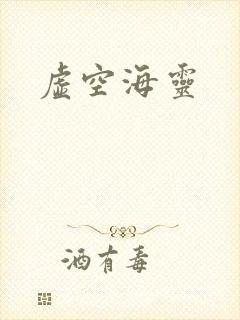 虛空海靈
酒有毒